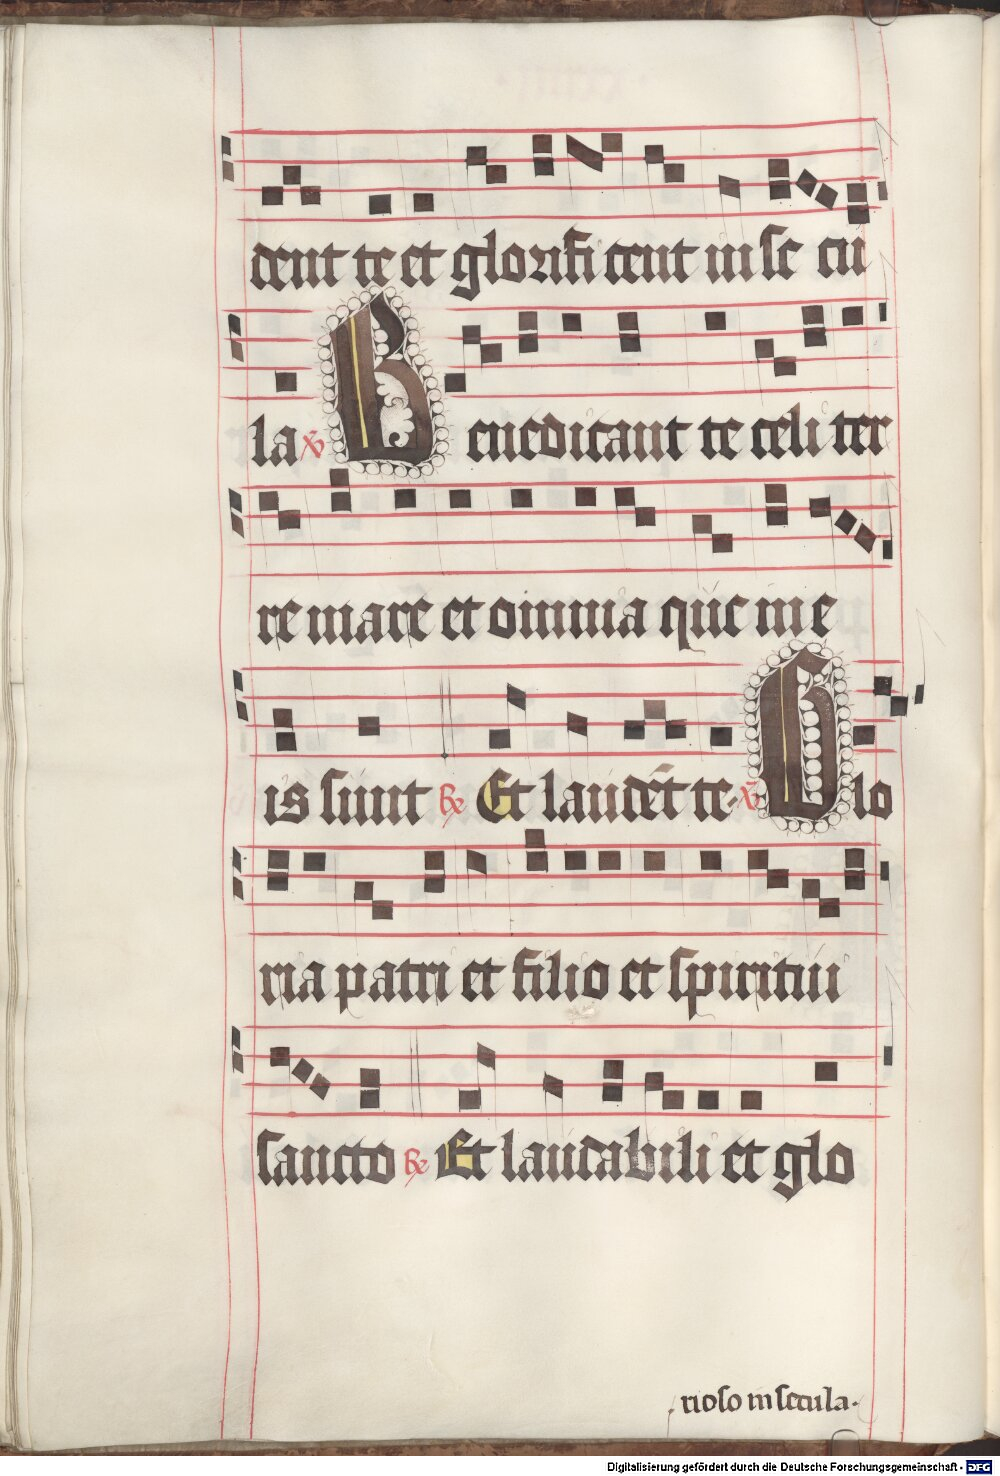 dent te et glorificent in se cu
la ℣ Benedicant te celi ter
re mare et omnia que in e
is sunt ℟ Et laudēt te ℣ Glo
ria patri et filio et spiritui
sancto ℟ Et laudabili et glo
rioso in secula.
Digitalisierung gefördert durch die Deutsche Forschungsgemeinschaft - DFG